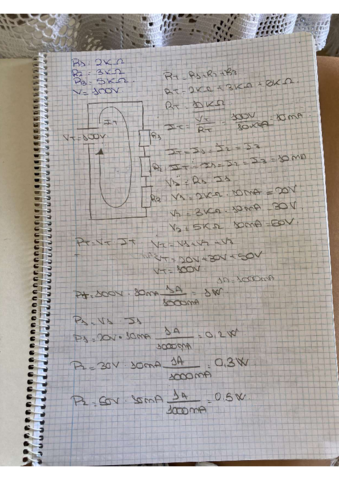 R1 = 2KΩ
R2 = 3KΩ
R3 = 5KΩ
V = 100V
RT = R1 + R2 + R3
RT = 2KΩ + 3KΩ + 5KΩ
RT = 10KΩ
IT
VT = 100V
R1
R2
R3
IT = VT / RT = 100V / 10KΩ = 10mA
IT = I1 = I2 = I3
IT = I1 = I2 = I3 = 10mA
V1 = R1 · I1
V1 = 2KΩ · 10mA = 20V
V2 = 3KΩ · 10mA = 30V
V3 = 5KΩ · 10mA = 50V
PT = VT · IT
VT = V1 + V2 + V3
VT = 20V + 30V + 50V
VT = 100V
1A = 1000mA
PT = 100V · 10mA · 1A / 1000mA = 1W
P1 = V1 · I1
P1 = 20V · 10mA · 1A / 1000mA = 0.2W
P2 = 30V · 10mA · 1A / 1000mA = 0.3W
= 50V · 10mA · 1A / 1000mA = 0.5W